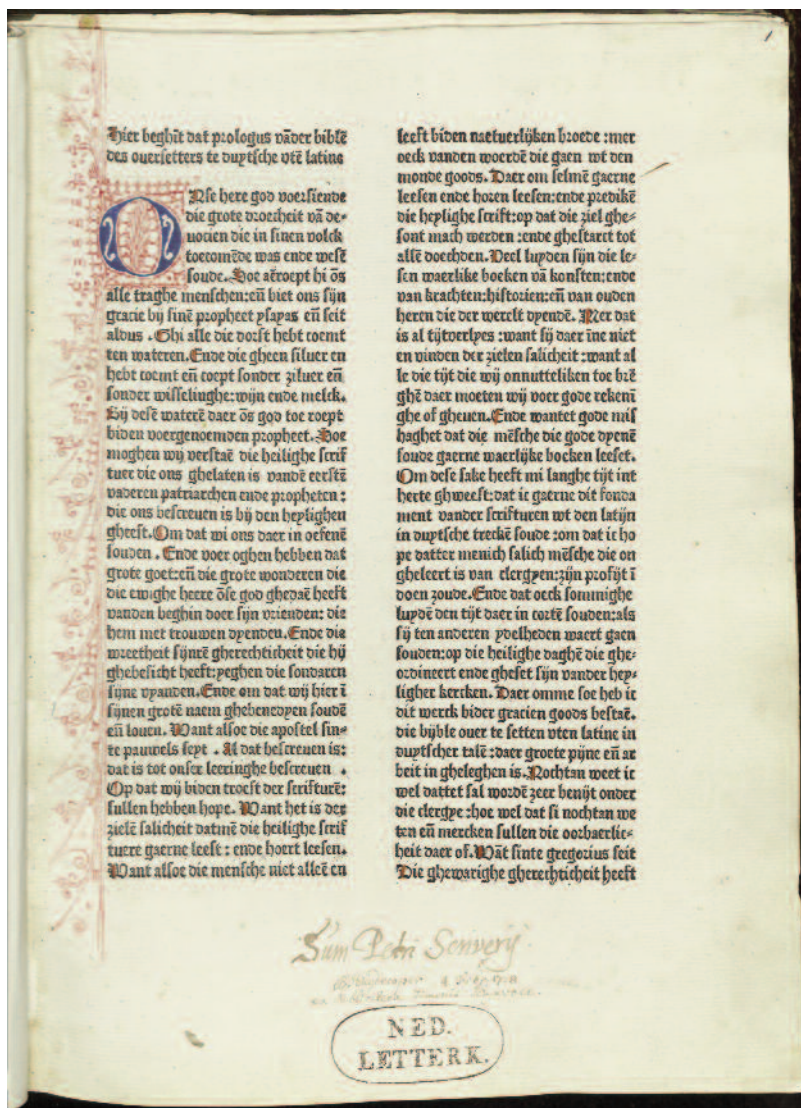 1
Hier beghīt dat prologus vāder biblē
des ouersetters te duytsche vtē latine
ONse here god voersiende
die grote droecheit vā de-
uocien die in sinen volck
toecomēde was ende wesē
soude. Hoe aēroept hi ōs
alle traghe menschen: eñ biet ons sijn
gracie bij sinē propheet ysayas eñ seit
aldus . Ghi alle die dorst hebt coemt
ten wateren. Ende die gheen siluer en
hebt coemt eñ coept sonder ziluer eñ
sonder wisselinghe: wijn ende melck.
Bij desē waterē daer ōs god toe roept
biden voergenoemden propheet. Soe
moghen wij verstaē die heilighe scrif
tuer die ons ghelaten is vandē eerstē
vaderen patriarchen ende propheten :
die ons bescreuen is bij den heylighen
gheest. Om dat wi ons daer in oefenē
souden . Ende voer oghen hebben dat
grote goet: eñ die grote wonderen die
die ewighe heere ōse god ghedaē heeft
vanden beghin doer sijn vrienden: die
hem met trouwen dyenden. Ende die
wreetheit sijnrē gherechticheit die hij
ghebesicht heeft: yeghen die sondaren
sijne vyanden. Ende om dat wij hier ī
sijnen grotē naem ghebenedyen soudē
eñ louen. Want alsoe die apostel sin-
te pauwels seyt . Al dat bescreuen is:
dat is tot onser leeringhe bescreuen .
Op dat wij biden troest der scrifturē:
sullen hebben hope. Want het is der
zielē salicheit datmē die heilighe scrif
tuere gaerne leest : ende hoert lesen.
Want alsoe die mensche niet alleē en
leeft biden naetuerlijken broede : mer
oeck vanden woerdē die gaen wt den
monde goods. Daer om selmē gaerne
leesen ende horen leesen: ende predikē
die heylighe scrift: op dat die ziel ghe-
sont mach werden : ende ghestarct tot
allē doechden. Veel luyden sijn die le-
sen waerlike boeken vā konsten: ende
van krachten: historien: eñ van ouden
heren die der werelt dyendē. Mer dat
is al tijtverlyes : want sij daer īne niet
en vinden der zielen salicheit : want al
le die tijt die wij onnutteliken toe brē
ghē daer moeten wij voer gode rekenī
ghe of gheuen. Ende wantet gode mis
haghet dat die mēsche die gode dyenē
soude gaerne waerlijke boeken leeset.
Om dese sake heeft mi langhe tijt int
herte ghweest: dat ic gaerne dit fonda
ment vander scrifturen wt den latijn
in duytsche treckē soude : om dat ic ho
pe datter menich salich mēsche die on
gheleert is van clergyen: zijn profijt ī
doen zoude. Ende dat oeck sommighe
luydē den tijt daer in cortē souden: als
sij ten anderen ydelheden waert gaen
souden: op die heilighe daghē die ghe-
ordineert ende gheset sijn vander hey-
ligher kercken. Daer omme soe heb ic
dit werck bider gracien goods bestaē.
die bijble ouer te setten vten latine in
duytscher talē : daer groete pijne eñ ar
beit in gheleghen is. Nochtan weet ic
wel dattet sal wordē zeer benijt onder
die clergye : hoe wel dat si nochtan we
ten eñ mercken sullen die oorbaerlic-
heit daer of. Wāt sinte gregorius seit
Die ghewarighe gherechticheit heeft
Sum Petri Senverij
NED.
LETTERK.